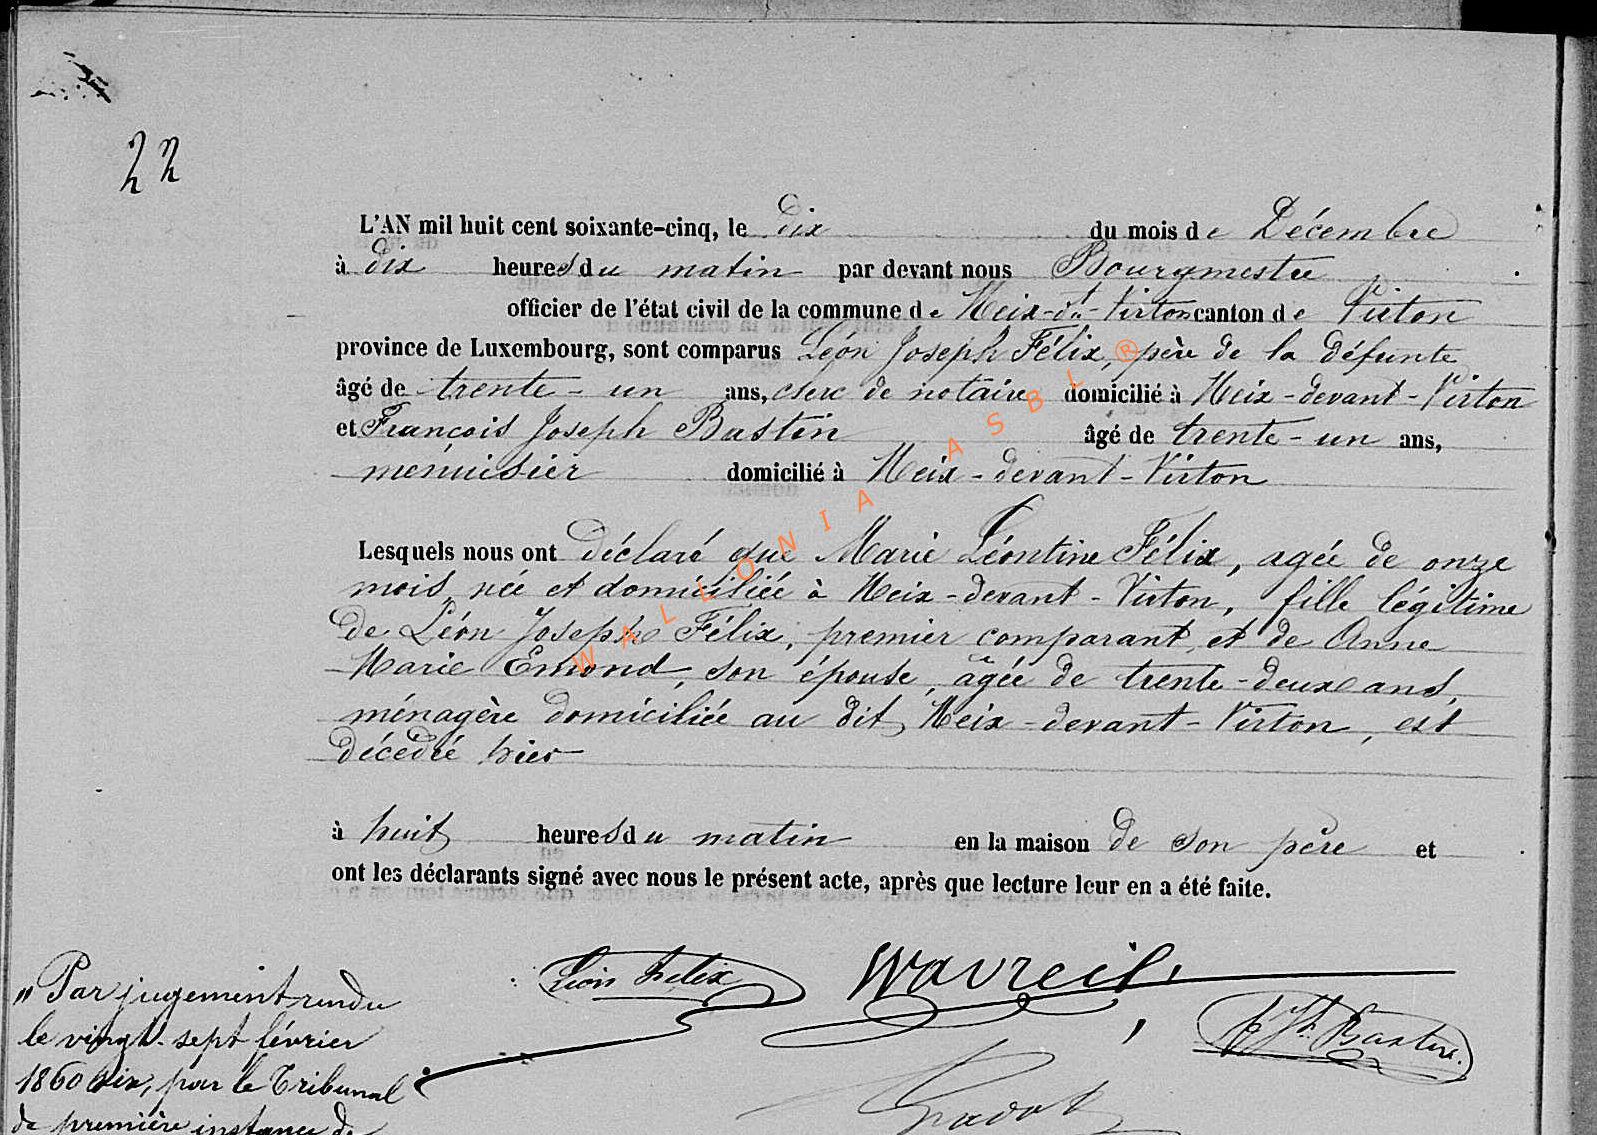 22
L'AN mil huit cent soixante-cinq, le dix du mois de Décembre
à dix heures du matin par devant nous Bourgmestre
officier de l'état civil de la commune de Meix-dt-Virton canton de Virton
province de Luxembourg, sont comparus Léon Joseph Félix, père de la défunte
âgé de trente-un ans, clerc de notaire domicilié à Meix-devant-Virton
et François Joseph Bastin âgé de trente-un ans,
menuisier domicilié à Meix-devant-Virton
Lesquels nous ont déclaré que Marie Léontine Félix, agée de onze
mois, née et domiciliée à Meix-devant-Virton, fille légitime
de Léon Joseph Félix, premier comparant, et de Anne
Marie Emond, son épouse, âgée de trente-deux ans,
ménagère domiciliée au dit Meix-devant-Virton, est
décédée hier
à huit heures du matin en la maison de son père et
ont les déclarants signé avec nous le présent acte, après que lecture leur en a été faite.
Léon Félix Wavreil
Jh Bastin
"Par jugement rendu
le vingt-sept février
1860 six, par le Tribunal
de première instance de
WALLONIA ASBL ®